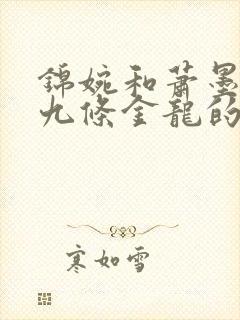 錦婉和蕭墨
九條金龍的
寒如雪